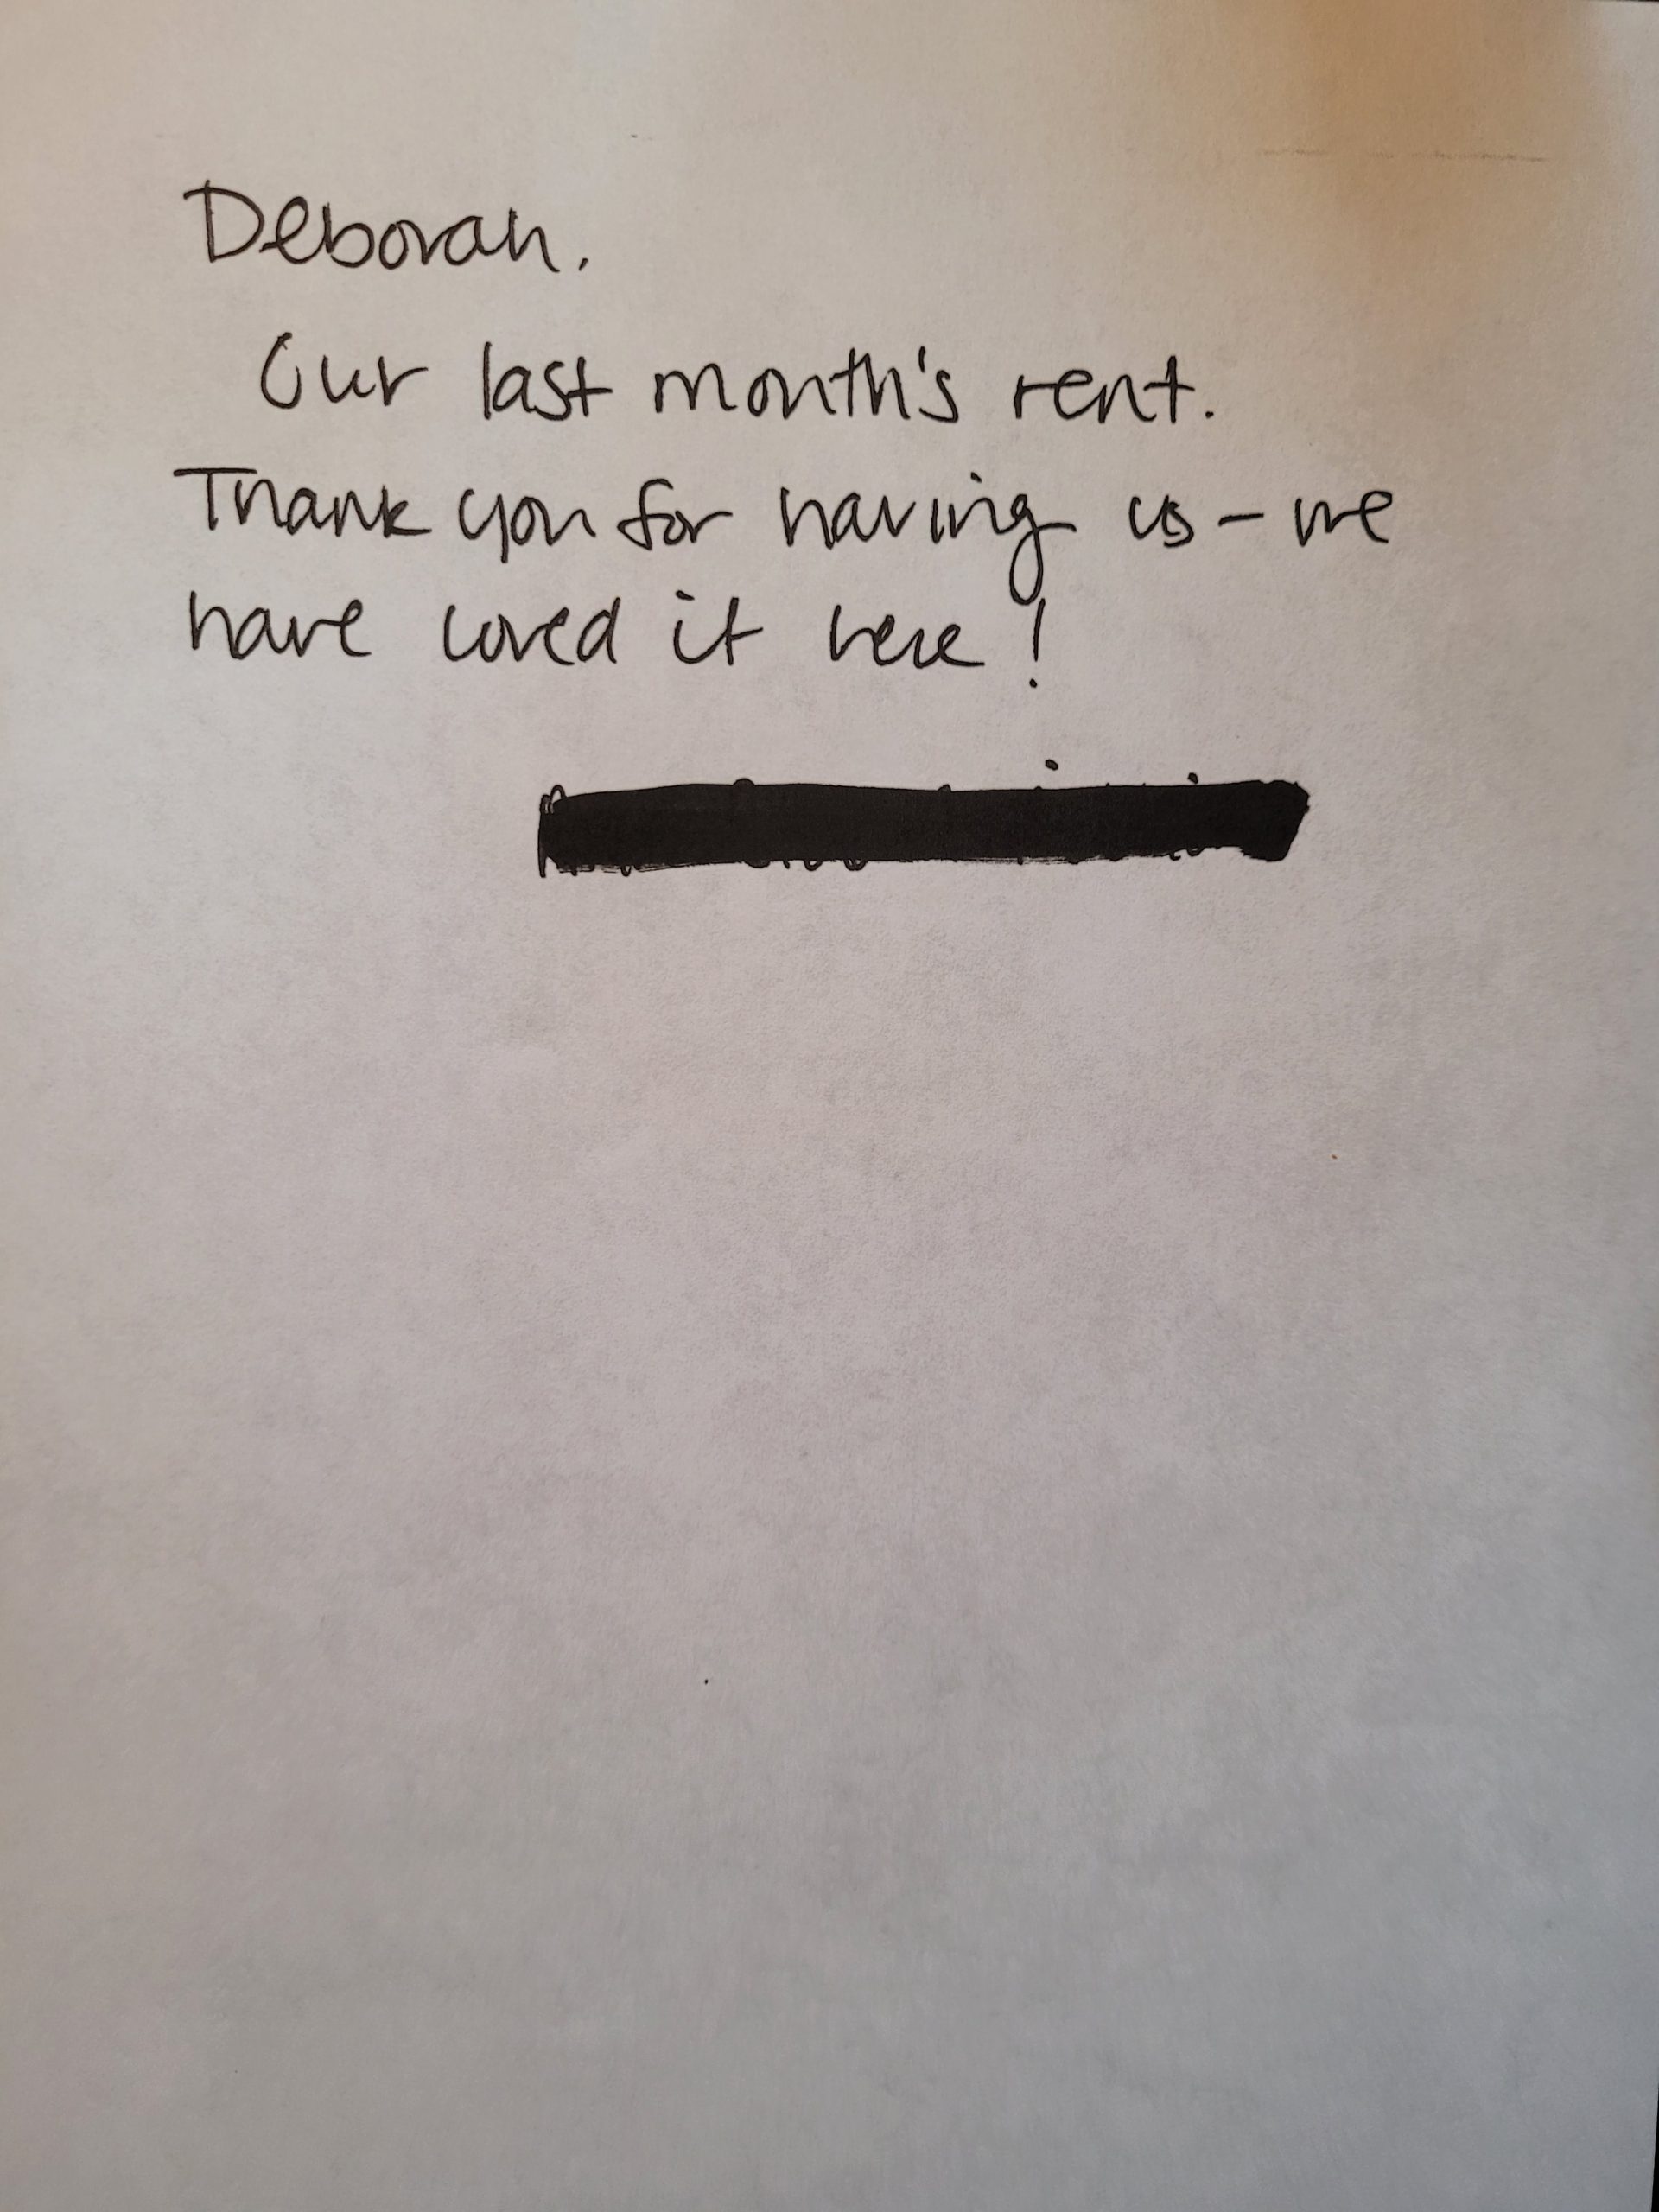 Deborah.
Our last month's rent.
Thank you for having us – we
have loved it here!